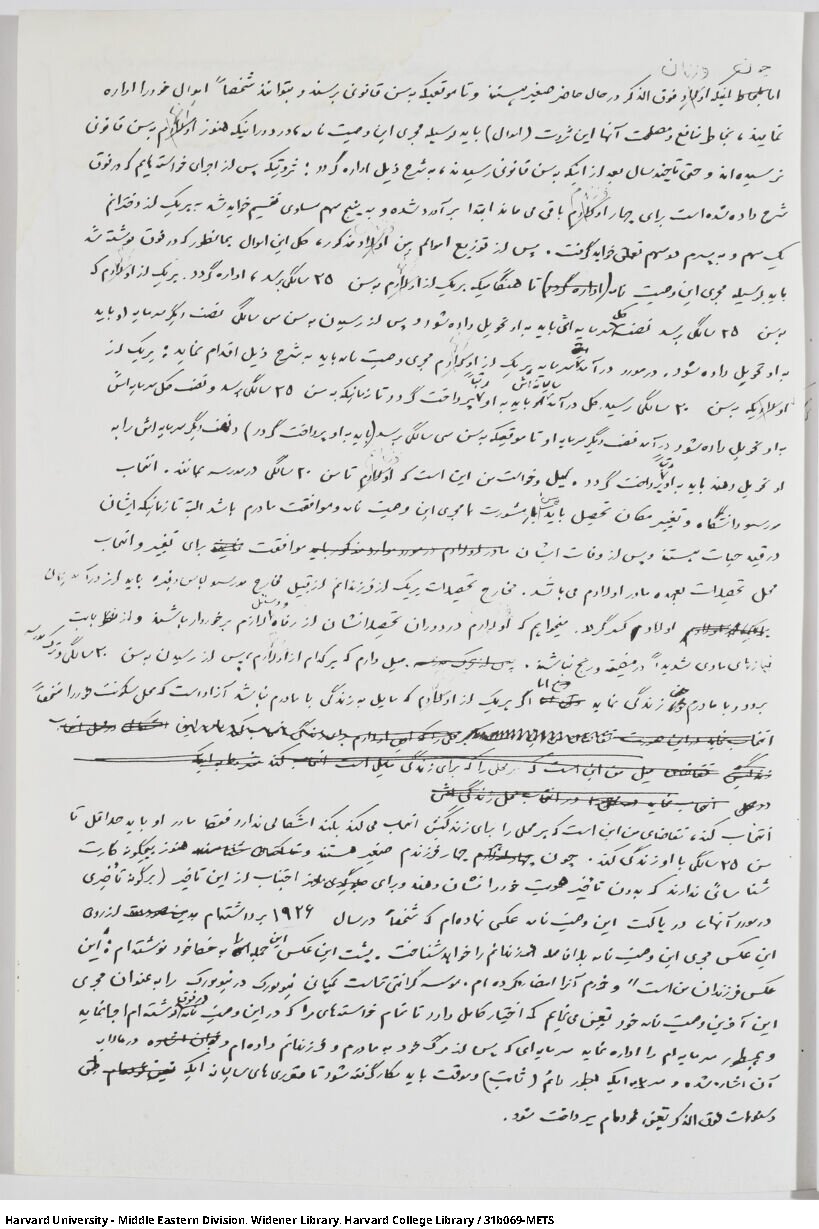 اما بلحاظ اینکه اولاد فوق الذکر در حال حاضر صغیر هستند و تا موقعیکه به سن قانونی برسند و بتوانند شخصاً اموال خود را اداره
نمایند، بخاطر منافع و مصلحت آنها این ثروت (اموال) باید بوسیله مجری این وصیت نامه، در دورانیکه هنوز اولادم به سن قانونی
نرسیده اند و حتی تا چند سال بعد از اینکه به سن قانونی رسیدند، به شرح ذیل اداره گردد: ثروتیکه پس از اجرای خواسته هایم که در فوق
شرح داده شده است برای چهار اولادم باقی می ماند ابتدا برآورد شده و به پنج سهم مساوی تقسیم خواهد شد به هریک از دخترانم
یک سهم و به پسرم دو سهم تعلق خواهد گرفت. پس از توزیع اموالم بین اولاد مذکور، کل این اموال بهمانطور که در فوق نوشته شد
باید بوسیله مجری این وصیت نامه (اداره گردد) تا هنگامیکه هریک از اولادم به سن ۲۵ سالگی برسد، اداره گردد. هریک از اولادم که
به سن ۲۵ سالگی برسد نصف کل سرمایه اش باید به او تحویل داده شود و پس از رسیدن به سن سی سالگی نصف دیگر سرمایه او باید
به او تحویل داده شود. در مورد درآمد سرمایه هریک از اولادم مجری وصیت نامه باید به شرح ذیل اقدام نماید: هریک از
اولادیکه به سن ۲۰ سالگی رسید کل درآمد سرمایه اش باید به او پرداخت گردد تا زمانیکه به سن ۲۵ سالگی برسد و نصف کل سرمایه اش
به او تحویل داده شود درآمد نصف دیگر سرمایه او تا موقعیکه به سن سی سالگی برسد (باید به او پرداخت گردد) و نصف دیگر سرمایه اش را به
او تحویل دهند باید به او پرداخت گردد. میل و خواست من این است که اولادم تا سن ۲۰ سالگی در مدرسه بمانند. انتخاب
مدرسه و دانشگاه و تغییر مکان تحصیل باید با مشورت با مجری این وصیت نامه و موافقت مادرم باشد البته تا زمانیکه ایشان
در قید حیات هستند و پس از وفات ایشان مادر اولادم در مورد موارد مذکور باید موافقت برای تغییر و انتخاب
محل تحصیلات بعهده مادر اولادم می باشد. مخارج تحصیلات هریک از فرزندانم از قبیل مخارج مدرسه لباس و غیره باید از درآمد
اولادم کسر گردد. میخواهم که اولادم در دوران تحصیلاتشان از رفاه لازم برخوردار باشند و از بابت
نیازهای مادی شدیداً در مضیقه و رنج نباشند. میل دارم که هرکدام از اولادم، پس از رسیدن به سن ۲۰ سالگی و ترک مدرسه
برود و با مادرم زندگی نماید اما اگر هریک از اولادم که مایل به زندگی با مادرم نباشد آزاد است که محل سکونت خود را شخصاً
میل من این است که هر محلی را که برای زندگی مایل است انتخاب کند
انتخاب نماید در انتخاب محل زندگی
انتخاب کند، تقاضای من این است که هر محلی را برای زندگیش انتخاب می کند بکند اشکالی ندارد فقط با مادر او باید حداقل تا
سن ۲۵ سالگی با او زندگی کند. چون چهار فرزندم صغیر هستند و هنوز هیچگونه کارت
شناسائی ندارند که بدون تأخیر هویت خود را نشان دهند و برای اجتناب از این تأخیر (هرگونه تأخیری
در مورد آنها) در پاکت این وصیت نامه عکسی نهاده ام که شخصاً در سال ۱۹۲۶ برداشته ام از روی
این عکس مجری این وصیت نامه بلافاصله فرزندانم را خواهد شناخت. پشت این عکس این جمله را به خط خود نوشته ام: "این
عکس فرزندان من است" و خودم آنرا امضاء کرده ام. موسسه گرانتی تراست کمپانی نیویورک در نیویورک را به عنوان مجری
این آخرین وصیت نامه خود تعیین می نمایم که اختیار کامل دارد تا تمام خواسته های مرا که در این وصیت نامه نوشته ام اجرا نماید
و بهمینطور سرمایه ام را اداره نماید سرمایه ای که پس از مرگ خود به مادرم و فرزندانم داده ام و در بالا به
آن اشاره شده و سرمایه ایکه بطور دائم (ثابت) و موقت باید بکار گرفته شود تا مقرری های سالیانه ایکه طی
دستورات فوق الذکر تعیین نموده ام پرداخت شود.
Harvard University - Middle Eastern Division. Widener Library. Harvard College Library / 31b069-METS